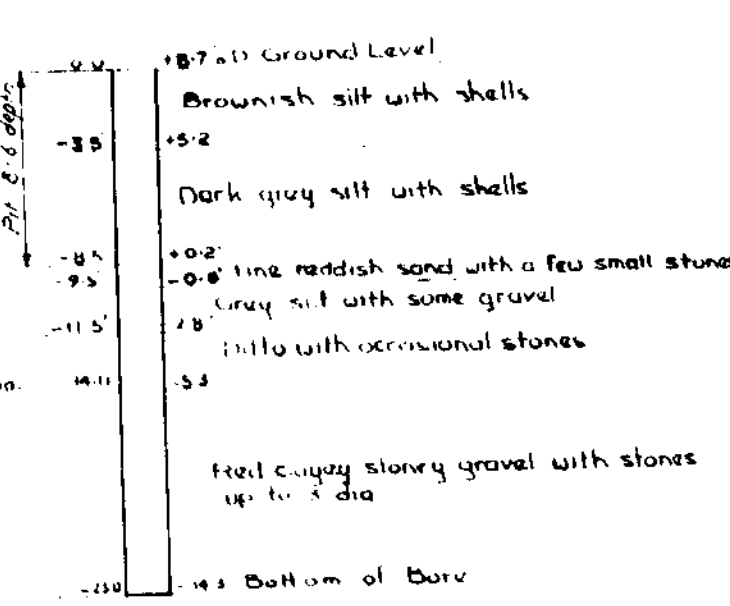 0.0 +8.7 O.D Ground Level
Brownish silt with shells
-3.5 +5.2
Dark grey silt with shells
Pit 8.6 depth
-8.5 +0.2'
-9.5 -0.8' Fine reddish sand with a few small stones
Grey silt with some gravel
-11.5' 2.8'
Ditto with occasional stones
14.0 -5.3
Red clayey stoney gravel with stones
up to dia
-23.0 -14.3 Bottom of Bore